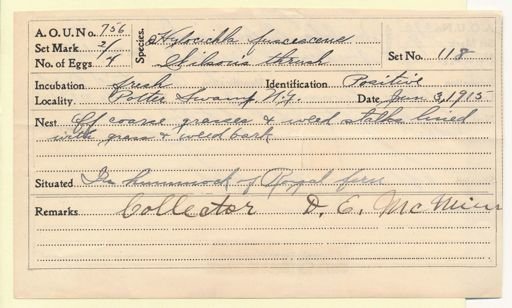 A. O. U. No. 756
Species. Hylocichla fuscescens
Set Mark 2/4
Wilsons thrush
Set No. 118
No. of Eggs 4
Incubation fresh Identification Positive
Locality Potter Swamp N.Y. Date Jun 3, 1915
Nest Of coarse grasses & weed stalks lined
with grass & weed bark
Situated In hummock of Royal fern
Remarks Collector D. E. McMinn